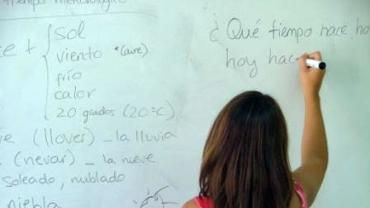 Tiempo meteorológico
ce + sol
viento *(aire)
frío
calor
20 grados (20°C)
(llover) _ la lluvia
(nevar) _ la nieve
soleado, nublado
niebla
¿Qué tiempo hace ho
hoy hac